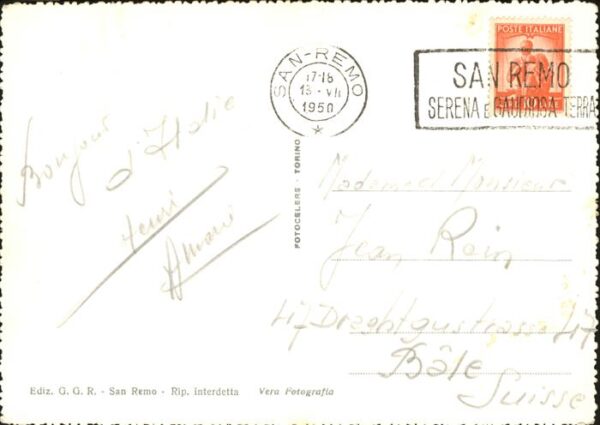 Bonjour
d'Italie
Henri
SAN-REMO
17-18
13-VII
1950
POSTE ITALIANE
SAN REMO
SERENA E GAUDIOSA TERRA
FOTOCELERE - TORINO
Madame et Monsieur
Jean Rein
47
Bâle
Suisse
Ediz. G. G. R. - San Remo - Rip. interdetta Vera Fotografia